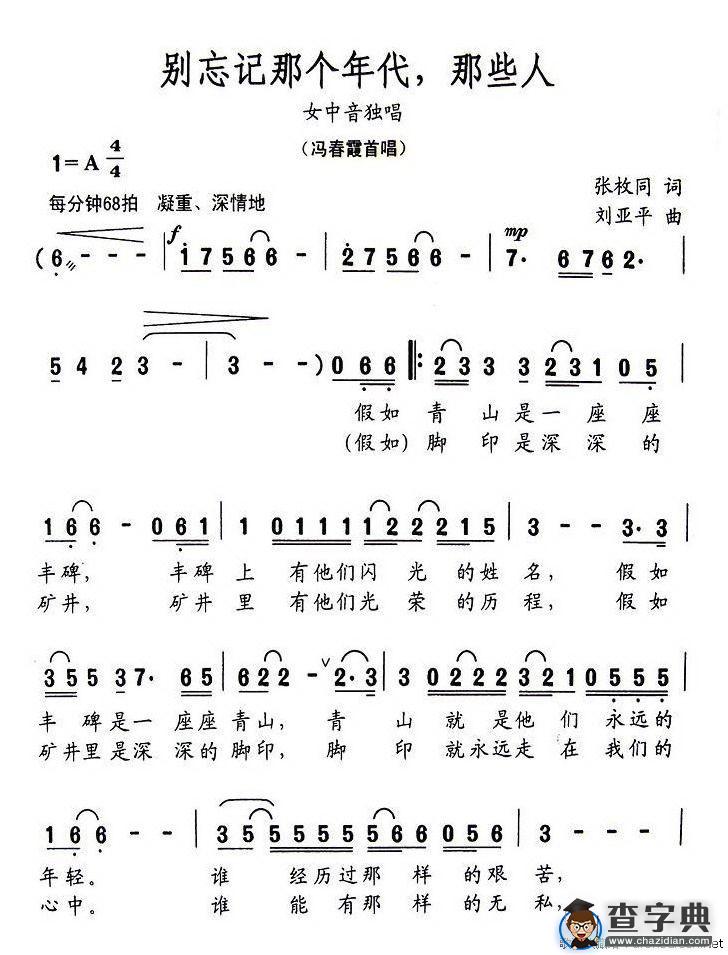 别忘记那个年代，那些人
女中音独唱
（冯春霞首唱）
1=A 4/4
每分钟68拍 凝重、深情地
张枚同 词
刘亚平 曲
f mp
(6 - - - | 1 7 5 6 6 - - | 2 7 5 6 6 - - | 7· 6 7 6 2· |
5 4 2 3 - | 3 - - ) 0 6 6 |: 2 3 3 3 2 3 1 0 5 |
假如 青 山 是 一 座 座
(假如) 脚 印 是 深 深 的
1 6 6 - 0 6 1 | 1 0 1 1 1 1 2 2 2 1 5 | 3 - - 3· 3 |
丰碑， 丰碑 上 有他们闪 光 的姓 名， 假 如
矿井， 矿井 里 有他们光 荣 的历 程， 假 如
3 5 5 3 7· 6 5 | 6 2 2 - ∨ 2· 3 | 3 0 2 2 2 3 2 1 0 5 5 5 |
丰 碑是一 座座青山， 青 山 就 是他 们 永远的
矿井里是深 深的脚印， 脚 印 就永远走 在 我们的
1 6 6 - - | 3 5 5 5 5 5 5 6 6 0 5 6 | 3 - - - |
年轻。 谁 经历过那 样 的艰 苦，
心中。 谁 能 有那 样 的无 私，
查字典
www.chazidian.com